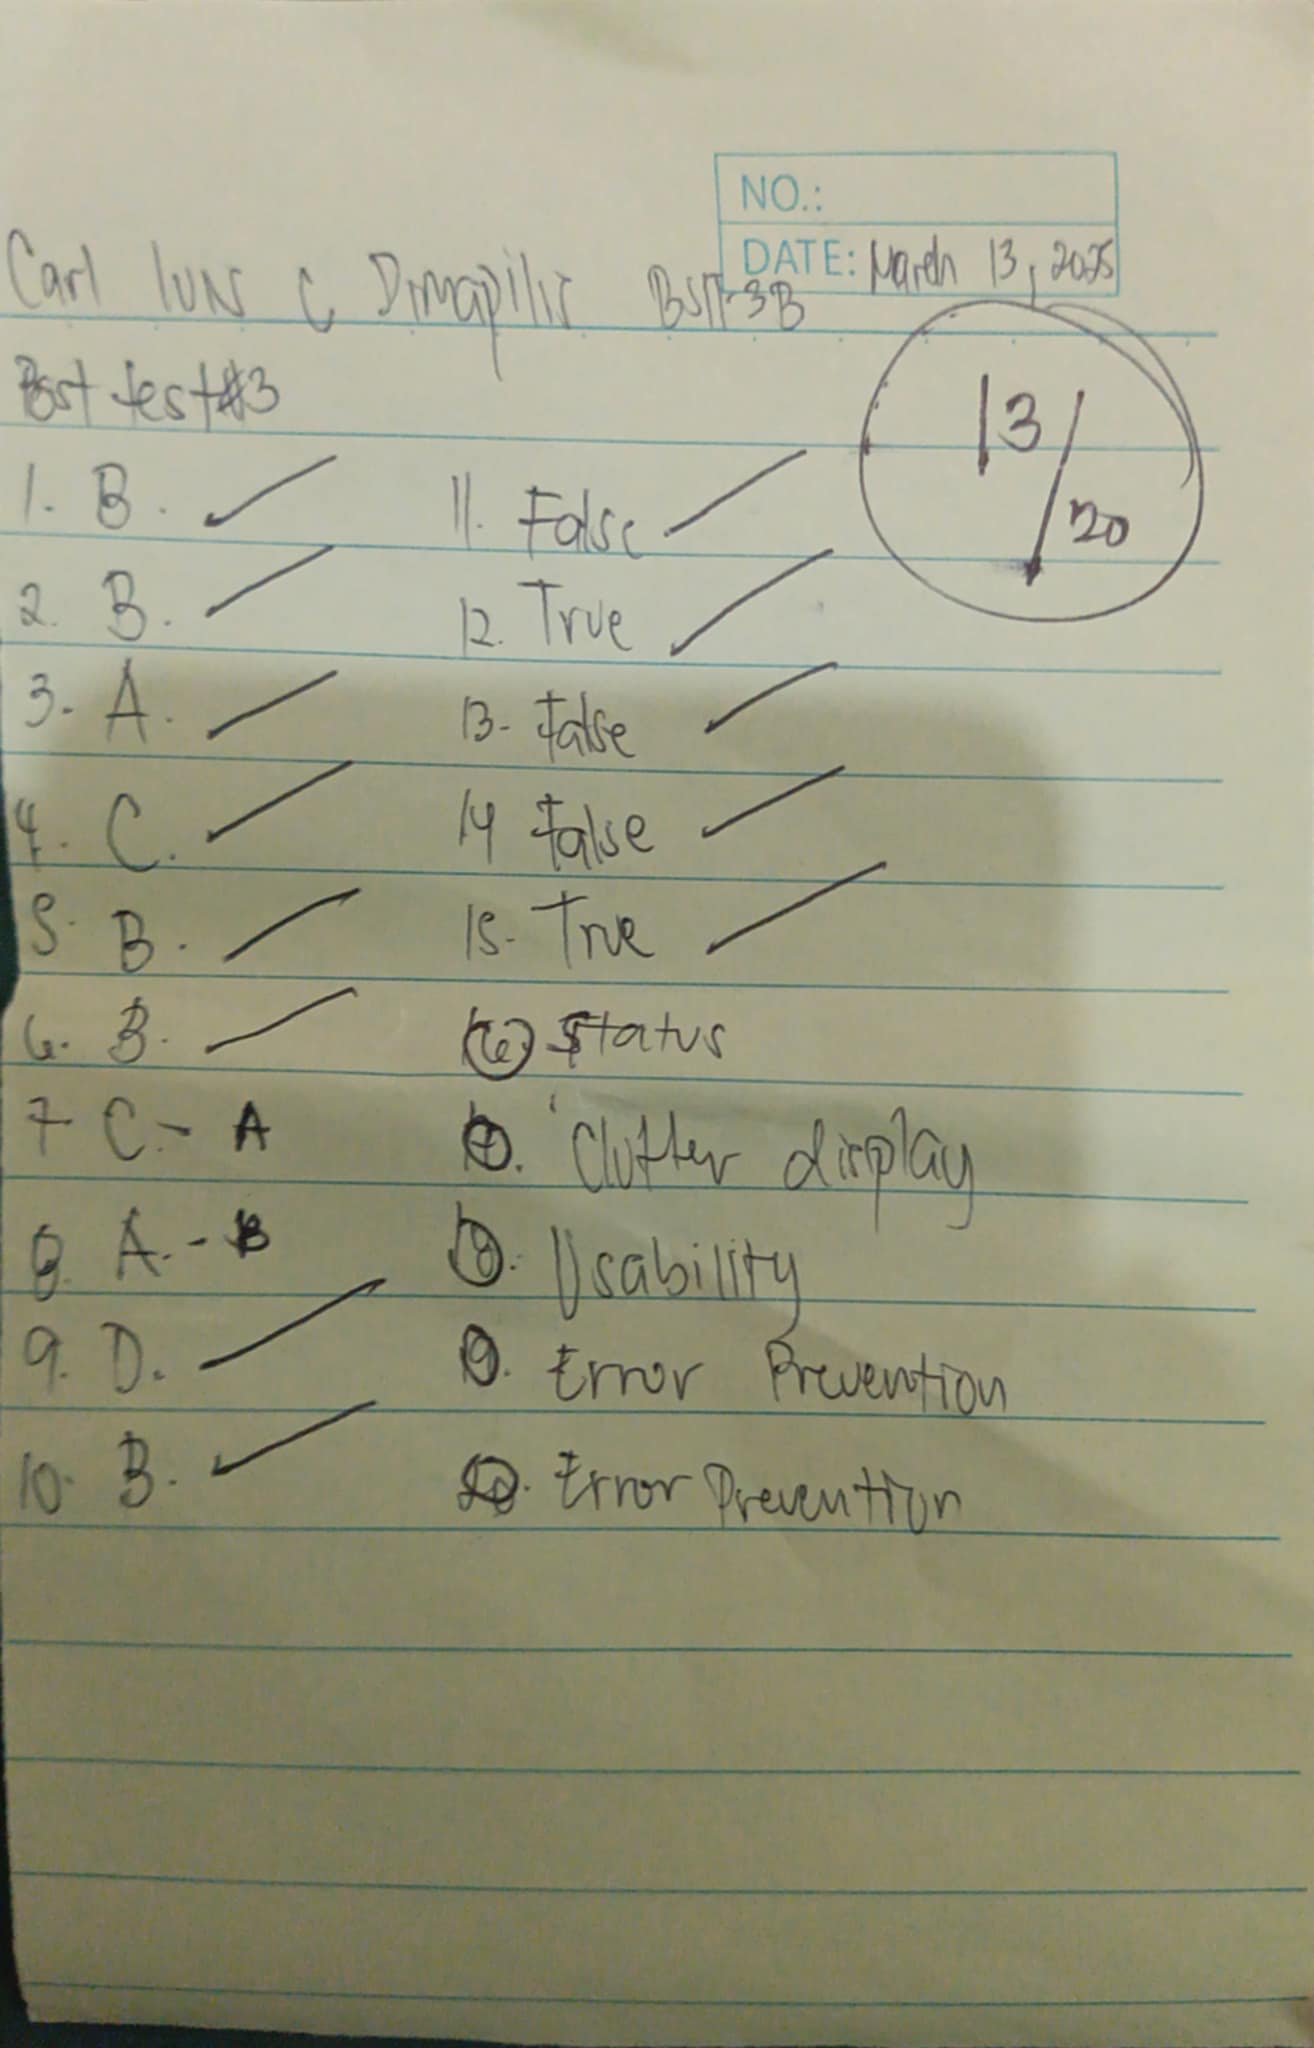 NO.:
DATE: March 13, 2025
Carl luis C Dimapilis BSIT-3B
Post test #3
13/20
1. B.
2. B.
3. A.
4. C.
5. B.
6. B.
7 C. - A
8. A. - B
9. D.
10. B.
11. False
12. True
13. False
14 False
15. True
16 Status
17. Clutter display
18. Usability
19. Error Prevention
20. Error Prevention